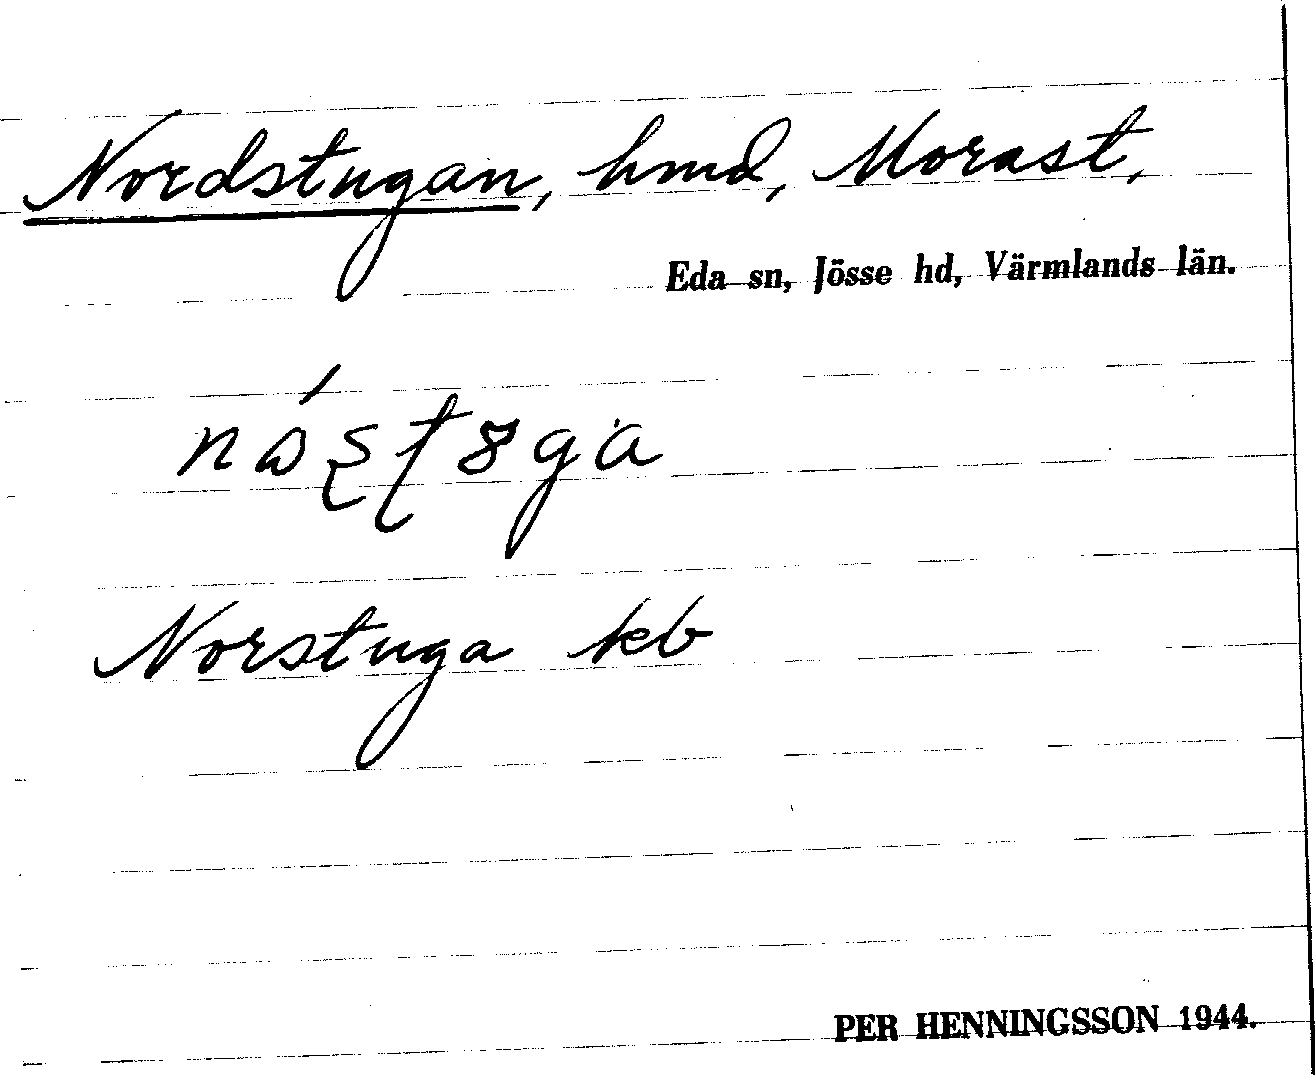 Nordstugan, hmd, Morast,
Eda sn, Jösse hd, Värmlands län.
Norstuga kb
PER HENNINGSSON 1944.